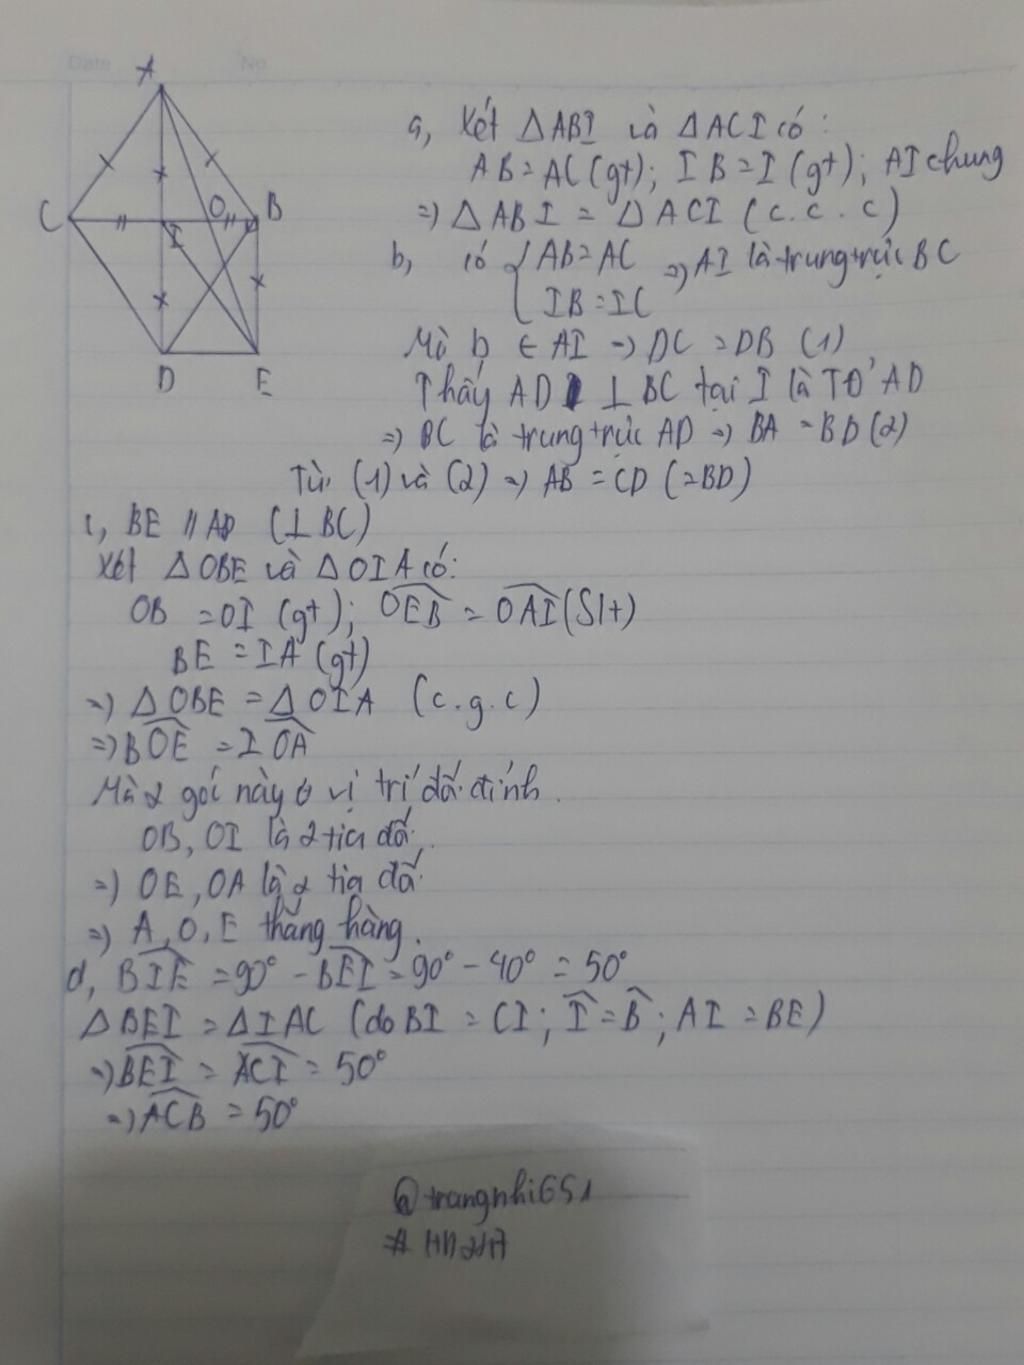 Date No
A
C
O
B
I
D
E
a, Xét △ABI và △ACI có:
AB = AC (gt); IB = I (gt); AI chung
=) △ABI = △ACI (c.c.c)
b, có { AB = AC =) AI là trung trực BC
IB = IC
Mà D ∈ AI =) DC = DB (1)
Thấy AD ⊥ BC tại I là TĐ' AD
=) BC là trung trực AD =) BA = BD (2)
Từ (1) và (2) =) AB = CD (=BD)
c, BE // AD (⊥ BC)
Xét △OBE và △OIA có:
OB = OI (gt); OEB = OAI (Slt)
BE = IA (gt)
=) △OBE = △OIA (c.g.c)
=) BOE = IOA
Mà 2 gói này ở vị trí đđ. đỉnh.
OB, OI là 2 tia đđ.
=) OE, OA là 2 tia đđ.
=) A, O, E thẳng hàng.
d, BIE = 90° - BEI = 90° - 40° = 50°
△BEI = △IAC (do BI = CI; I = B; AI = BE)
=) BEI = ACI = 50°
=) ACB = 50°
@trangnhi651